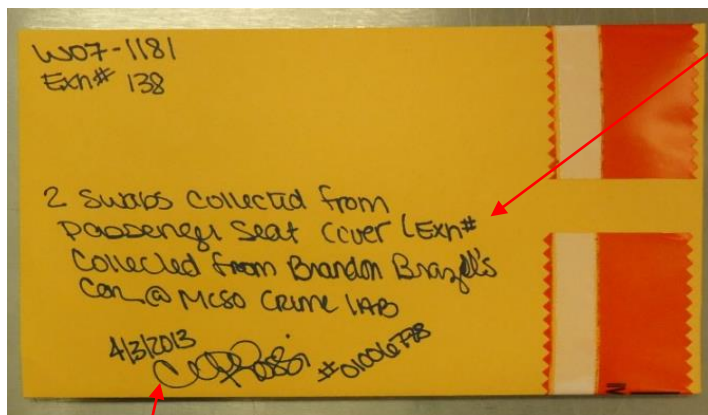 W07-1181
Exh# 138
2 Swabs Collected from
passenger Seat Cover (Exh#
Collected from Brandon Brazell's
Car @ MCSO CRIME LAB
4/3/2013